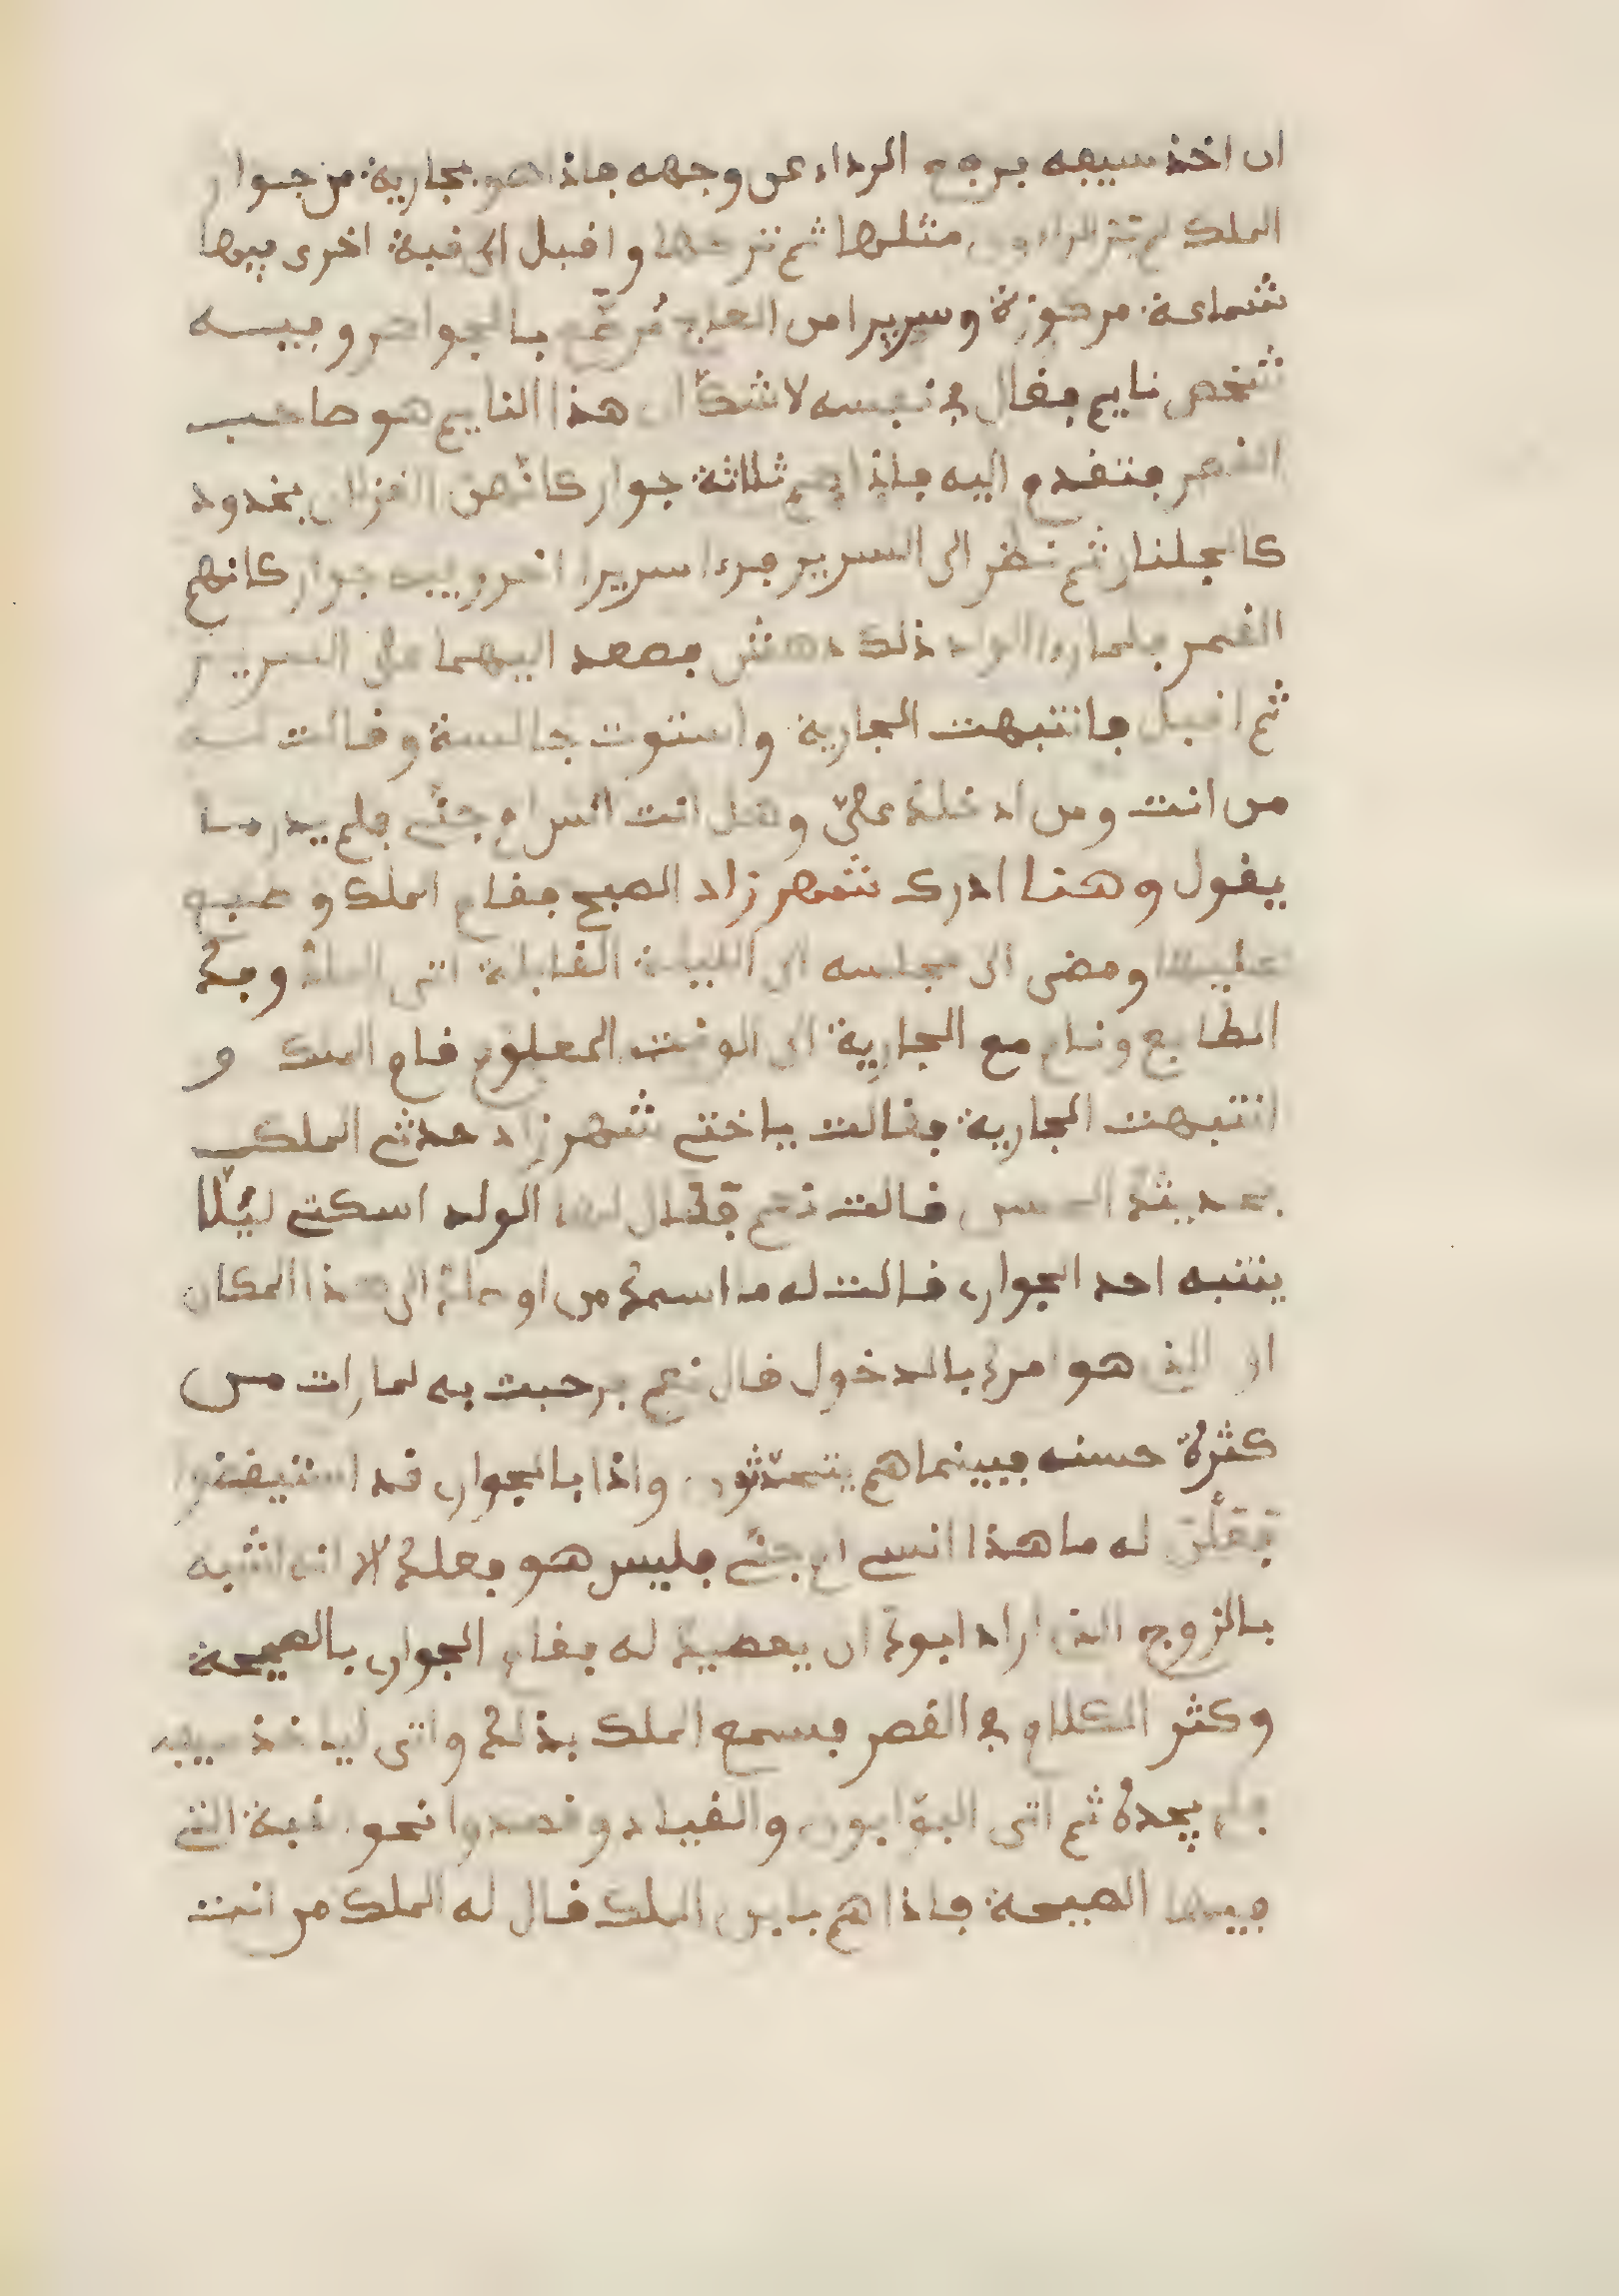 ان اخذ سيفه برفع الرداء عن وجهه فاذا هو بجارية من جوار
الملك لم تر مثلها ثم تركها واقبل الى قبة اخرى فيها
شماعة مركوزة وسريرا من العاج مرصّع بالجواهر وفيه
شخص نايم فقال في نفسه لا شكّ ان هذا النايم هو صاحب
القصر فتقدم اليه فاذا هم ثلاثة جوار كانّهن الغزلان بخدود
كالجلنار ثم نظر الى السرير فرءا سريرا اخر وبيه جوار كانهم
القمر فلما رءا الولد ذلك دهش فصعد اليهما على السرير
ثم اقبل فانتبهت الجارية واستوت جالسة وقالت له
من انت ومن ادخلك عليّ وهل انت انس ام جنّي فلم يدر ما
يقول وهنا ادرك شهرزاد الصبح فقام الملك وطبع
عليها ومضى الى مجلسه الى الليلة القابلة اتى الملك وفك
الطابع ونام مع الجارية الى الوقت المعلوم قام الملك و
انتبهت الجارية فقالت ياختي شهرزاد حدثي الملك
بحديثك الحسن قالت نعم فقال لها الولد اسكتي ليّلا
ينتبه احد الجوار قالت له ما اسمك من اوصلك الى هذا المكان
ابى الذي هو امرك بالدخول قال نعم فرحبت به لما رات من
كثرة حسنه فبينما هم يتحدّثون واذا بالجوار قد استيقنوا
فقلن له ما هذا انسي ام جنّي فليس هو فعلك الا انه اشبه
بالزوج الذي اراد ابوك ان يعطيك له فقام الجوار بالصيحة
وكثر الكلام في القصر فسمع الملك بذلك واتى لياخذ سيفه
فلم يجده ثم اتى البوّابون والقياد وقصدوا نحو قبة التي
فيها الصيحة فاذا هم بابن الملك قال له الملك من انت